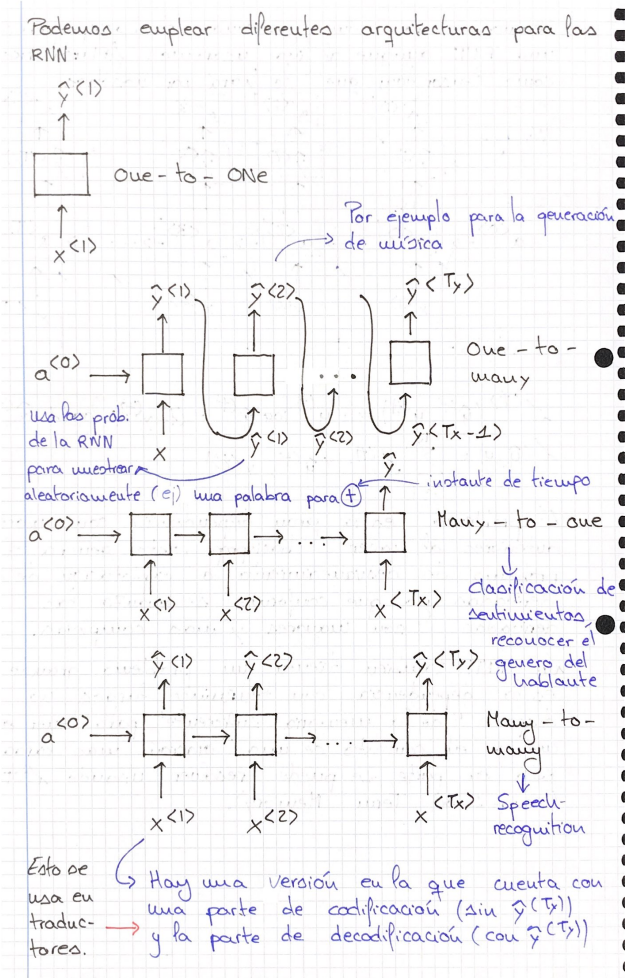 Podemos emplear diferentes arquitecturas para las
RNN:
ŷ<1>
One-to-ONe
x<1>
Por ejemplo para la generación
de música
ŷ<1> ŷ<2> ŷ<Ty>
a<0> ... One-to-
many
x ŷ<1> ŷ<2> ŷ<Tx-1>
usa las prob.
de la RNN
para muestrear
aleatoriamente (ej) una palabra para t
instante de tiempo
ŷ
a<0> ... Many-to-one
x<1> x<2> x<Tx>
Clasificación de
sentimientos,
reconocer el
genero del
hablante
ŷ<1> ŷ<2> ŷ<Ty>
a<0> .... Many-to-
many
x<1> x<2> x<Tx>
Speech-
recognition
Esto se
usa en
traduc-
tores.
Hay una versión en la que cuenta con
una parte de codificación (sin ŷ<Ty>)
y la parte de decodificación (con ŷ<Ty>)